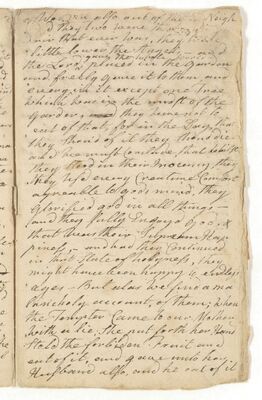 also out of the
and they two were
that ever was, they
little lower the Angels, and
the Lord placed in the Garden
and freely gave it to them, and
every in it except one tree
which was in the midst of the
Garden, they were not to
eat of that, for in the Day that
they should eat they should die
and we must conclude that while
they stood in their Inocency they
they Injoyed every Creature Comfort
agreeable to gods mind, they
Glorified god in all things
and they fully Enjoyed god, &
that was their Supream Hap
piness, and had they Continued
in that State of holyness, they
might have been happy to endless
ages - But alas we find a ma
lancholy account, of them, when
the Tempter Came to our Mother
with a lie, She put forth her Hand
took the forbiden Fruit and
eat of it, and gave unto her
Husband also, and he eat of it